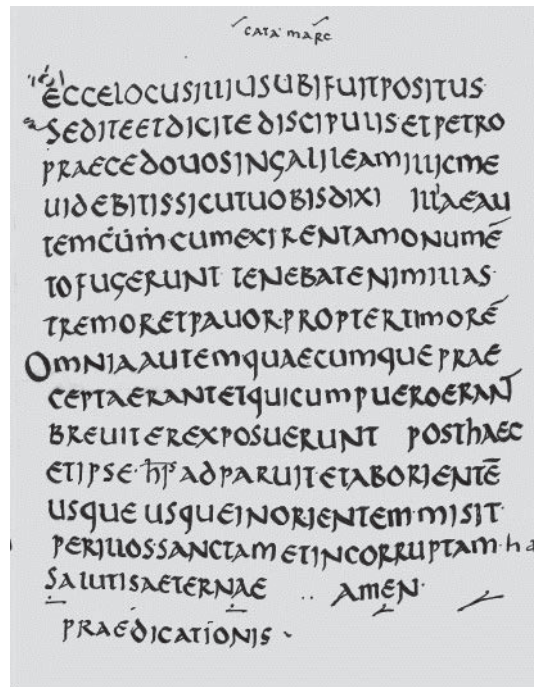 CATA MARC
ECCELOCUSILLIUSUBIFUITPOSITUS
SEDITEETDICITEDISCIPULISETPETRO
PRAECEDOUOSINGALILEAMILLICME
UIDEBITISSICUTUOBISDIXI ILLAEAU
TEMCUM·CUMEXIRENTAMONUMĒ
TOFUGERUNT TENEBATENIMILLAS
TREMORETPAUOR·PROPTERTIMORĒ
OMNIAAUTEMQUAECUMQUEPRAE
CEPTAERANTETQUICUMPUEROERANT
BREUITEREXPOSUERUNT POSTHAEC
ETIPSE·h̅p̅s̅ADPARUIT·ETABORIENTĒ
USQUE·USQUEINORIENTEM·MISIT·
PERILLOSSANCTAMETINCORRUPTAM·ha
SALUTISAETERNAE ·· AMEN·
PRAEDICATIONIS·